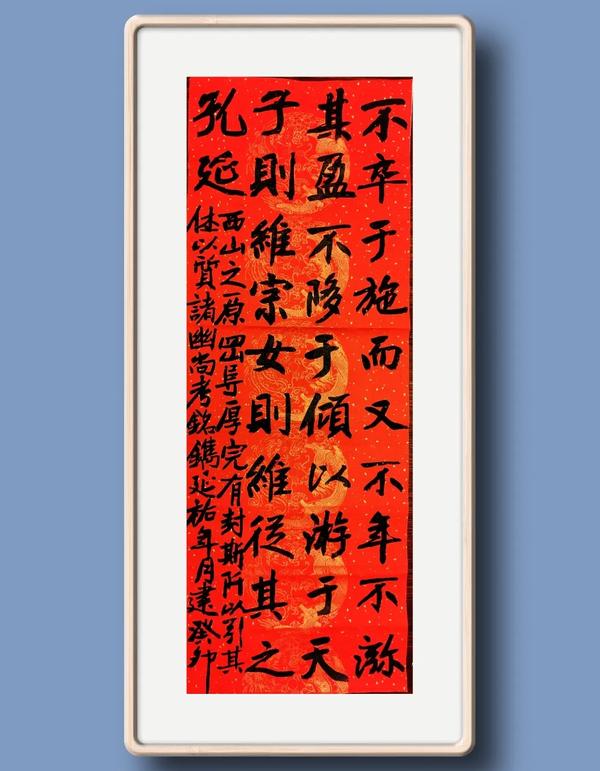 不卒于施而又不年不
其盈不陊于傾以游于天
子則維宗女則維從其之
孔延
西山之原岡阜厚完有封斯阡以引其
休以質諸幽尚考銘鐫延祐年月建癸卯